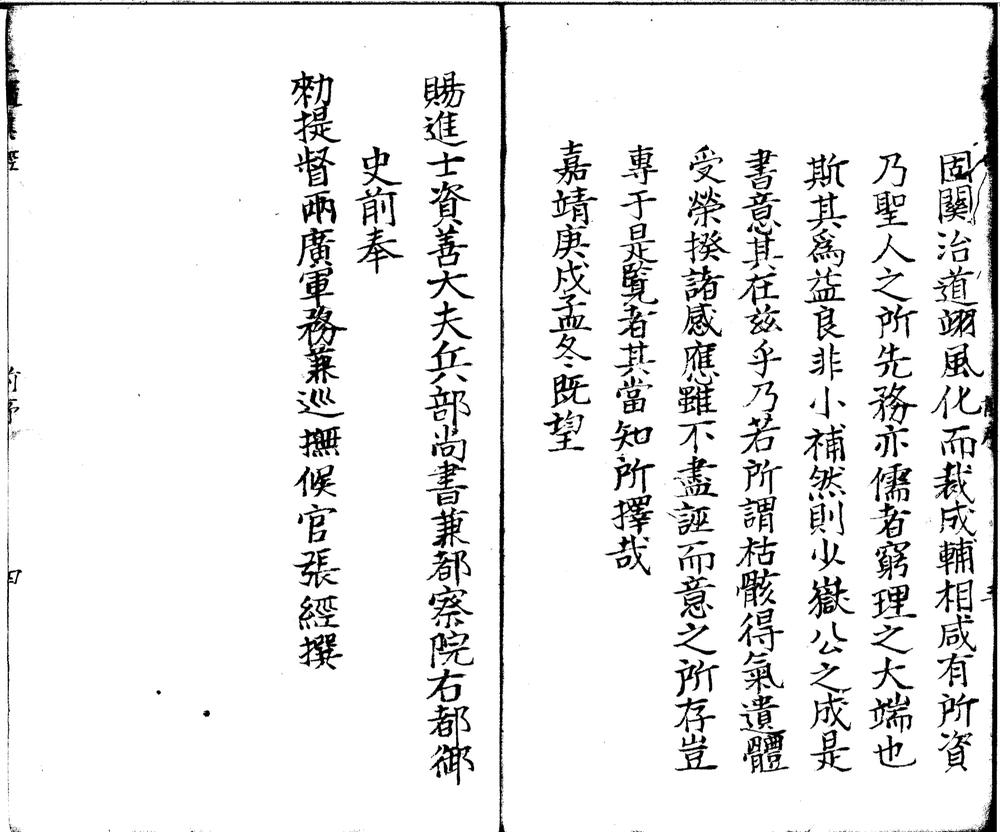 固關治道翊風化而裁成輔相咸有所資
乃聖人之所先務亦儒者窮理之大端也
斯其爲益良非小補然則少嶽公之成是
書意其在兹乎乃若所謂枯骸得氣遺體
受榮揆諸感應雖不盡誣而意之所存豈
專于是覽者其當知所擇哉
嘉靖庚戌孟冬既望
賜進士資善大夫兵部尚書兼都察院右都御
史前奉
勑提督兩廣軍務兼巡撫候官張經撰